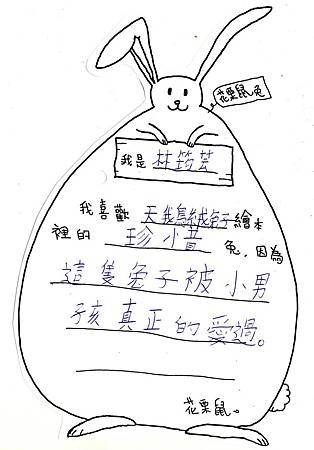 花栗鼠兔
我是林筠芸
我喜歡天鵝絨兔子繪本
裡的珍小普兔,因為
這隻兔子被小男
孩真正的愛過。
花栗鼠。